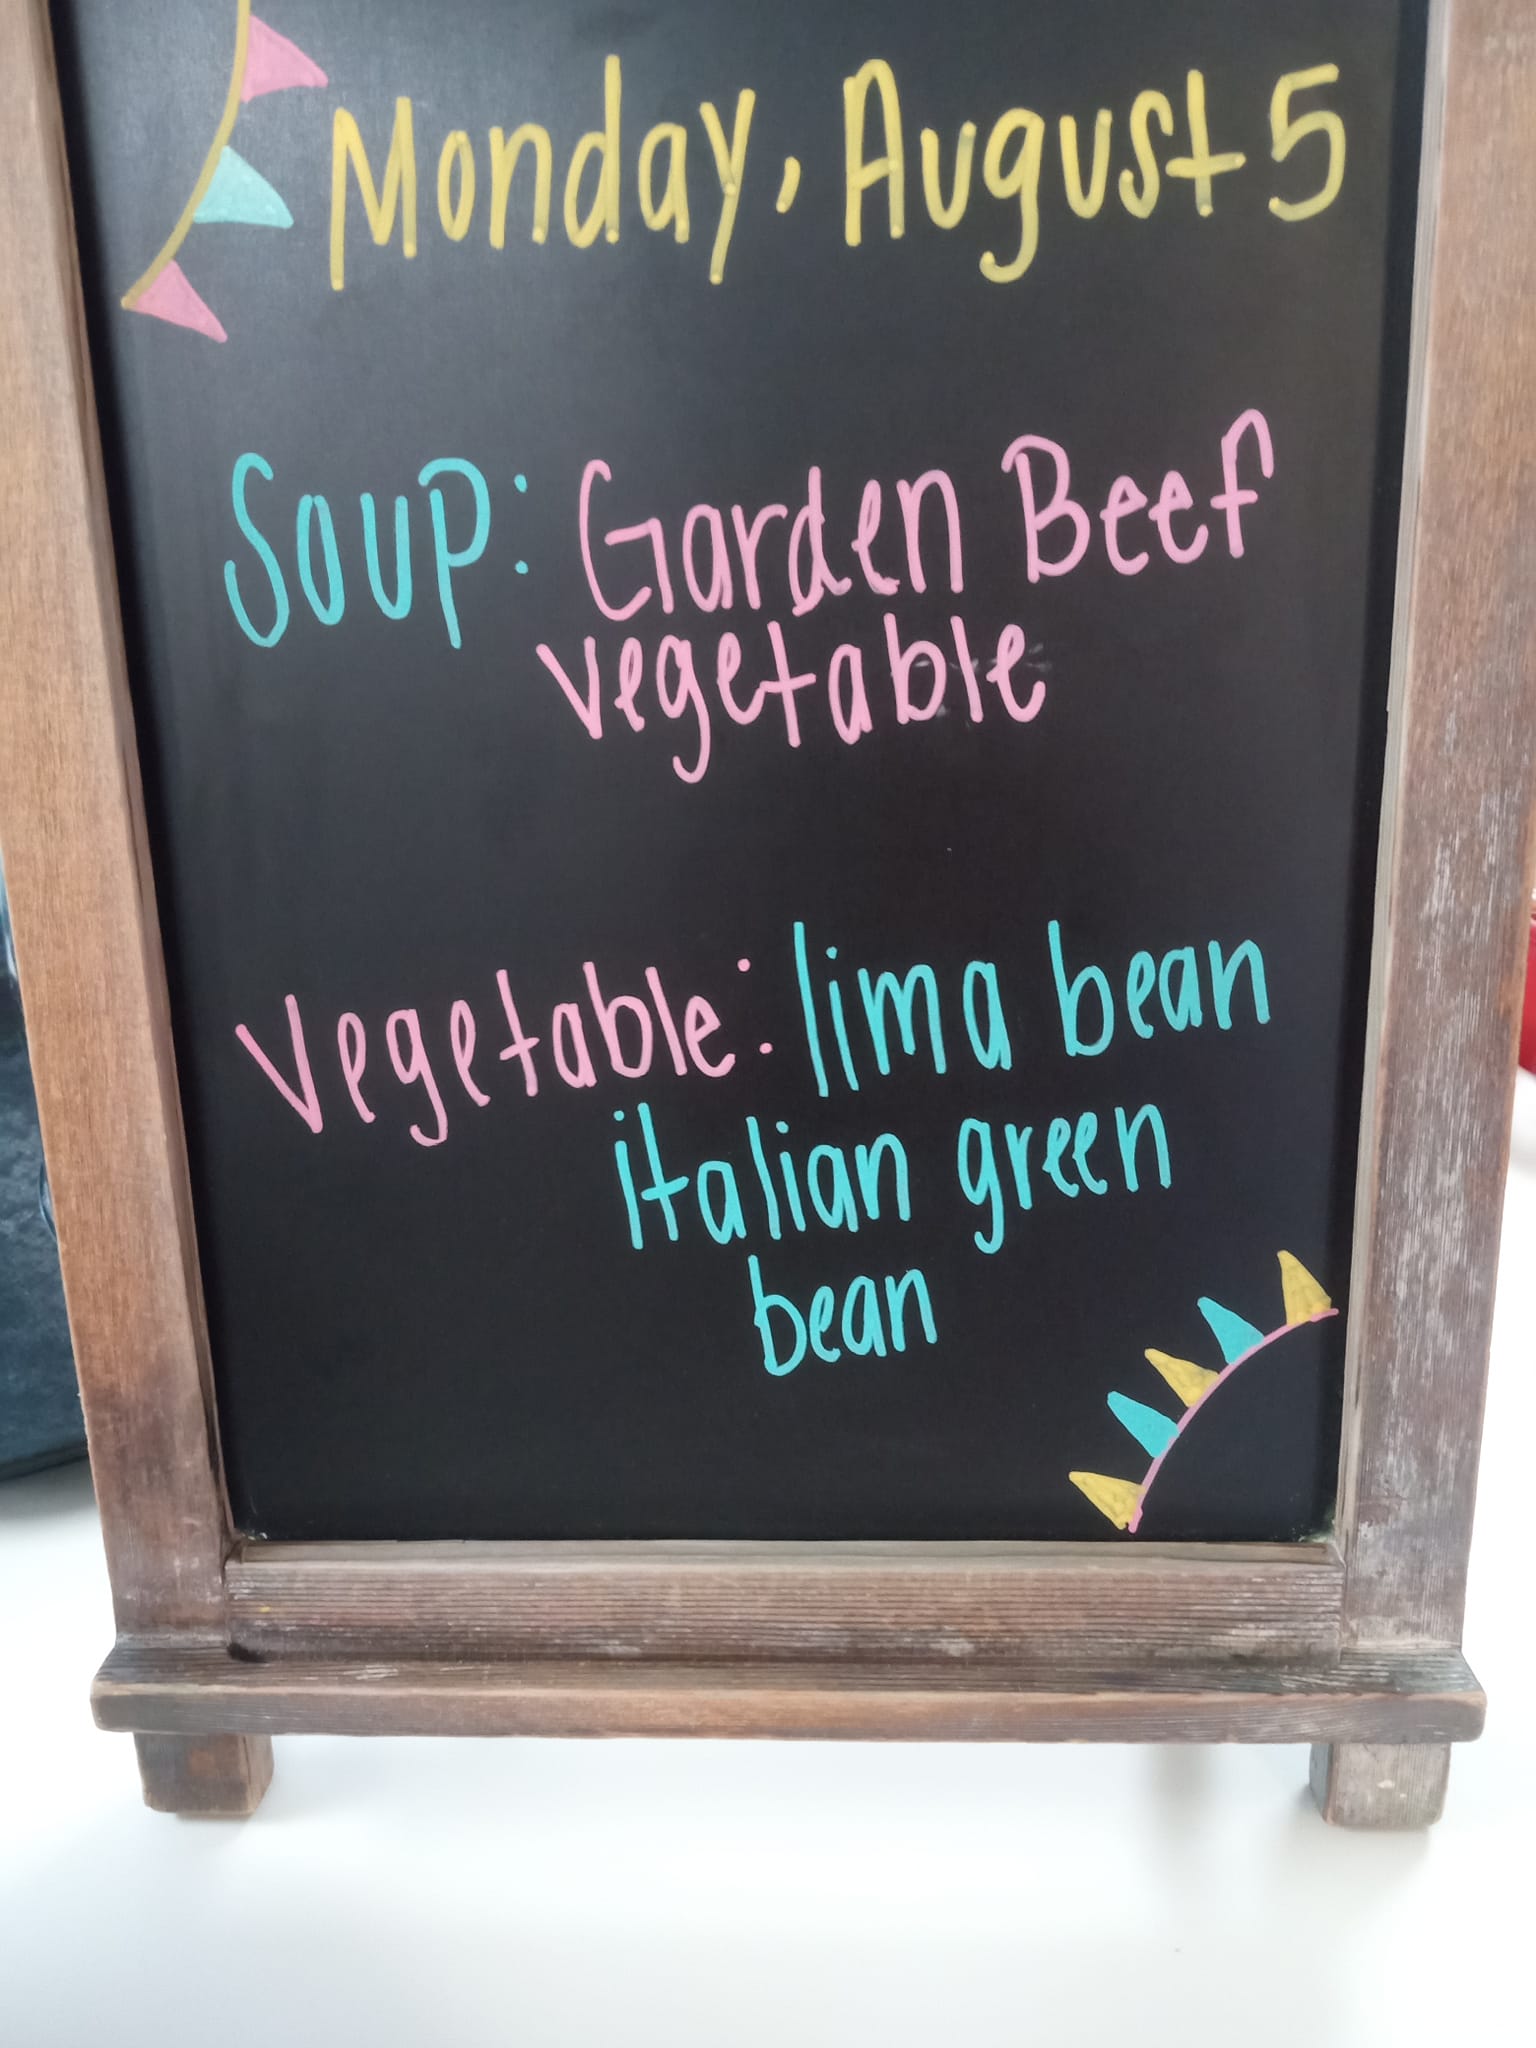 Monday, August 5
Soup: Garden Beef
vegetable
Vegetable: lima bean
italian green
bean